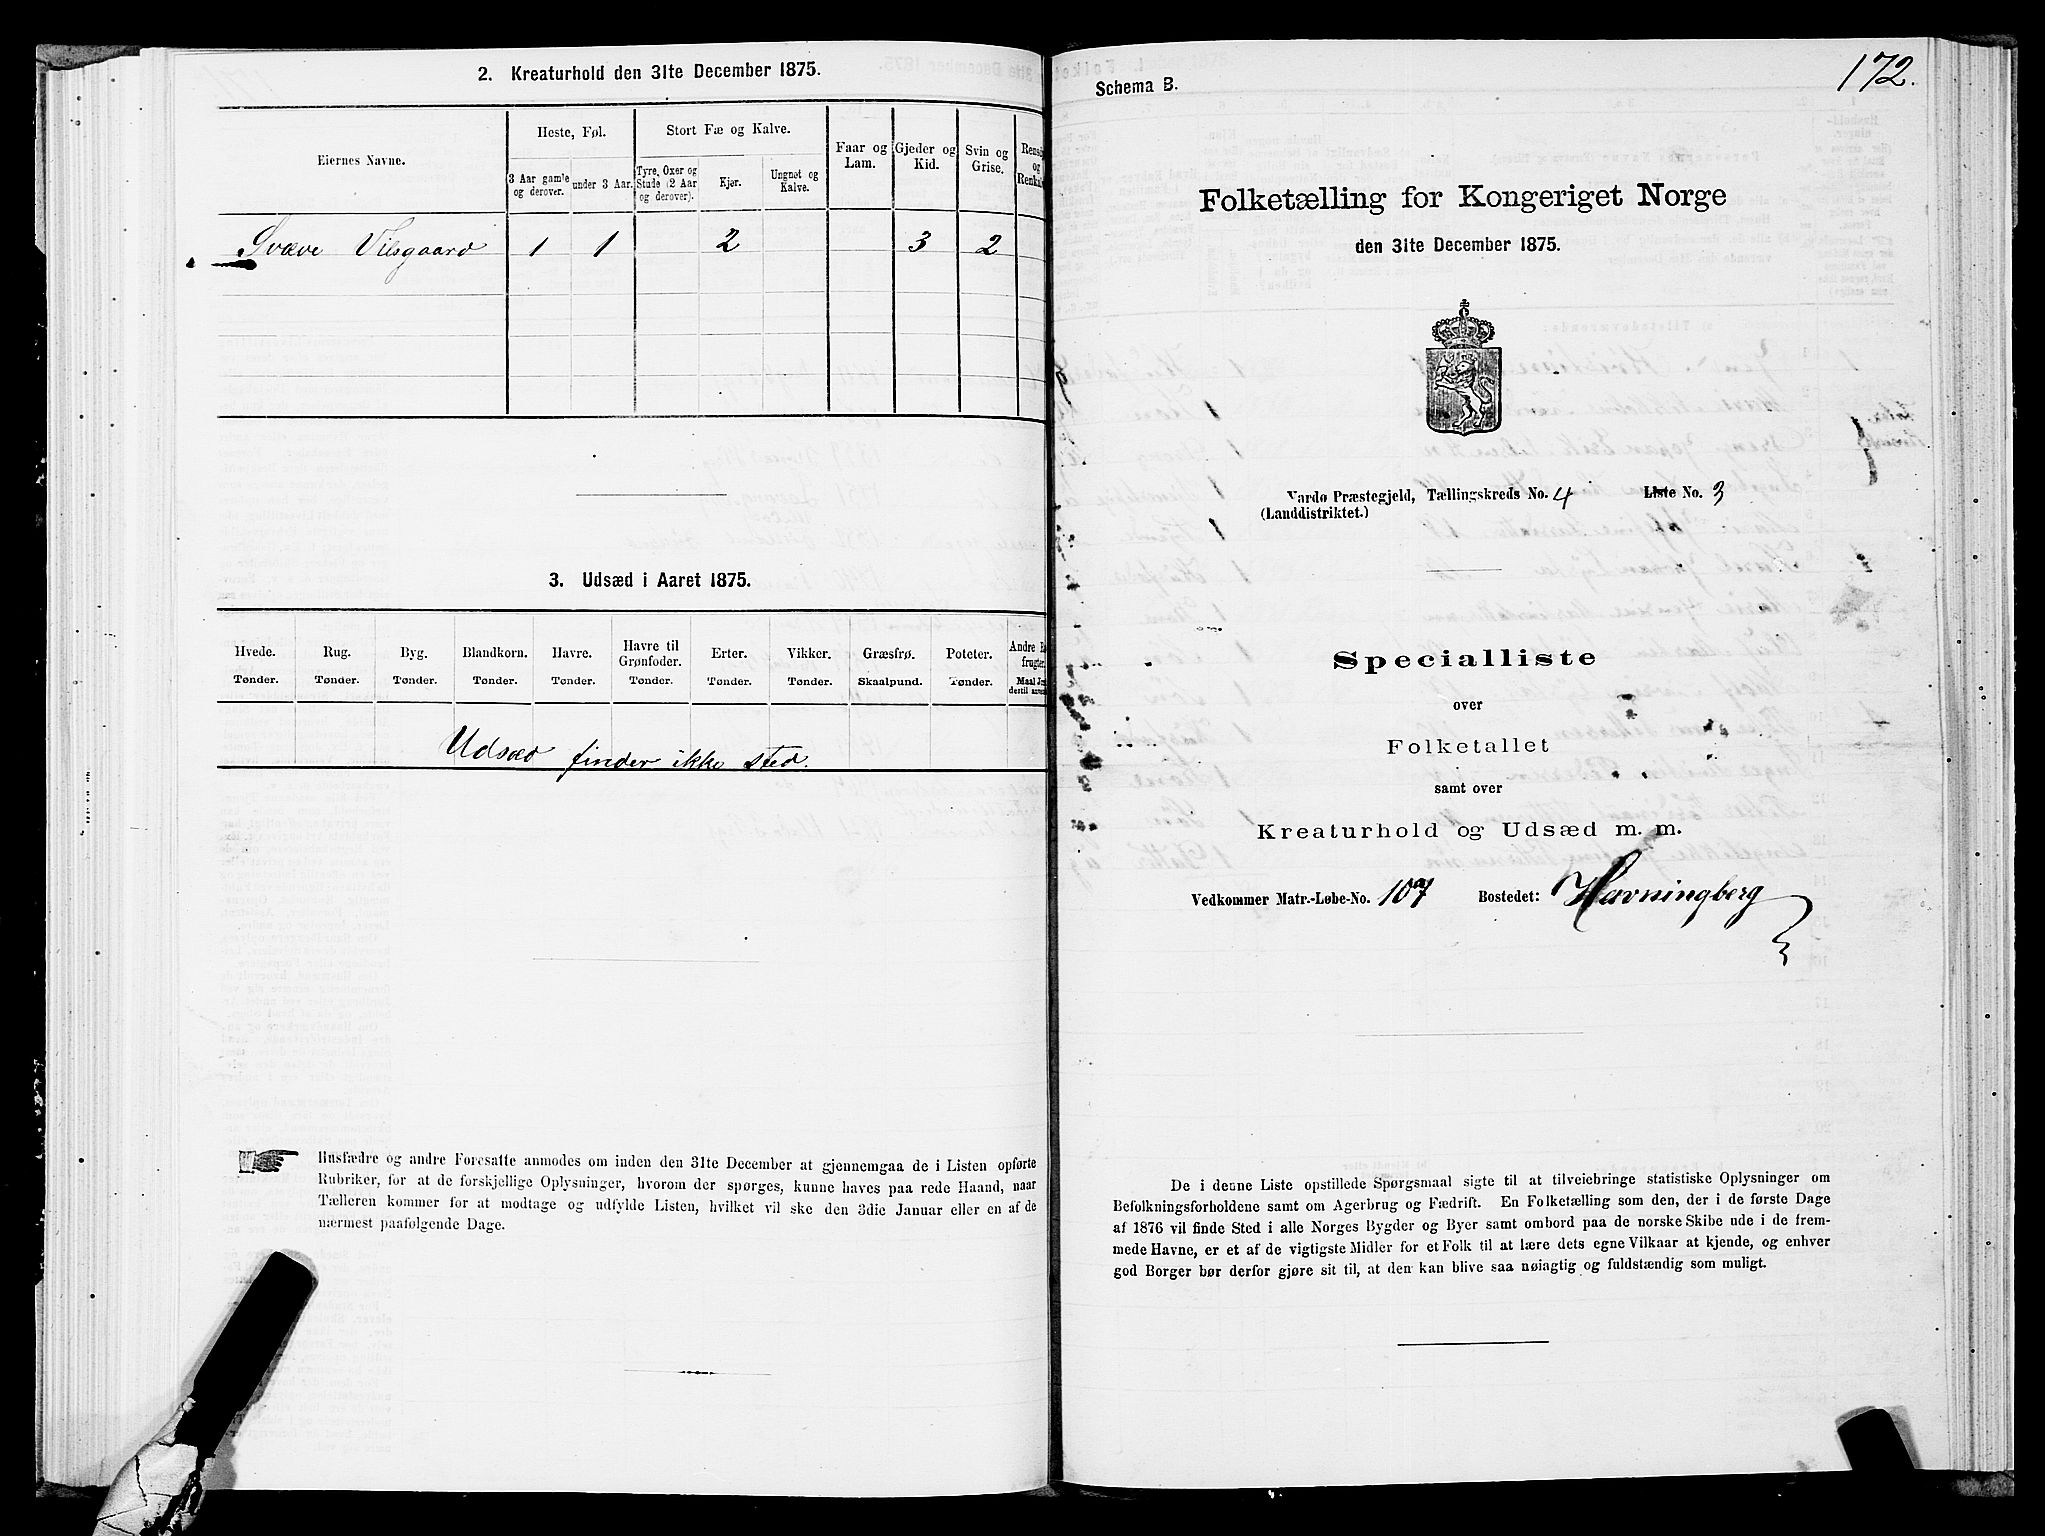 2. Kreaturhold den 31te December 1875.
Eiernes Navne.
Heste, Føl.
Stort Fæ og Kalve.
Faar og
Lam.
Gjeder og
Kid.
Svin og
Grise.
og
3 Aar gamle
og derover.
under 3 Aar.
Tyre, Oxer og
Stude (2 Aar
og derover).
Kjør.
Ungnøt og
Kalve.
Svæve Vilsgaard 1 1 2 3 2
3. Udsæd i Aaret 1875.
Hvede. Rug. Byg. Blandkorn. Havre. Havre til Grønfoder. Erter. Vikker. Græsfrø. Poteter. Andre
Tønder. Tønder. Tønder. Tønder. Tønder. Tønder. Tønder. Tønder. Skaalpund. Tønder. Maal
Udsæd finder ikke sted.
Husfædre og andre Foresatte anmodes om inden den 31te December at gjennemgaa de i Listen opførte
Rubriker, for at de forskjellige Oplysninger, hvorom der spørges, kunne haves paa rede Haand, naar
Tælleren kommer for at modtage og udfylde Listen, hvilket vil ske den 3die Januar eller en af de
nærmest paafølgende Dage.
172.
Schema B.
Folketælling for Kongeriget Norge
den 31te December 1875.
Vardø Præstegjeld, Tællingskreds No. 4 Liste No. 3
(Landdistriktet.)
Specialliste
over
Folketallet
samt over
Kreaturhold og Udsæd m. m.
Vedkommer Matr.-Løbe-No. 107a Bostedet: Havningberg
De i denne Liste opstillede Spørgsmaal sigte til at tilveiebringe statistiske Oplysninger om
Befolkningsforholdene samt om Agerbrug og Fædrift. En Folketælling som den, der i de første Dage
af 1876 vil finde Sted i alle Norges Bygder og Byer samt ombord paa de norske Skibe ude i de frem-
mede Havne, er et af de vigtigste Midler for et Folk til at lære dets egne Vilkaar at kjende, og enhver
god Borger bør derfor gjøre sit til, at den kan blive saa nøiagtig og fuldstændig som muligt.